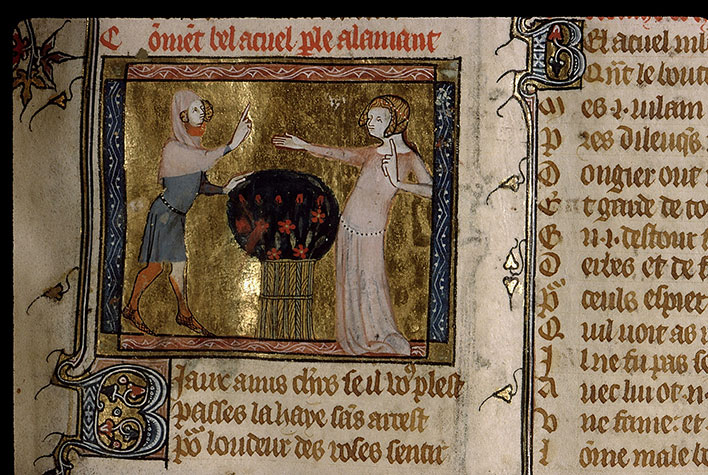 Coment bel acuel ple alamant
Biaux amis chrs se il voꝰ plest
Passes la haye sãs arrest
Por loudeur des roses sentir
Bel acuel
Qãt le bouto
Mes .i. vilain
Pres dileuqs
Dongier out
Et garde de to
En .i. destour
Derbes et de f
Por ceuls espier
Quil voit as
Il ne fu pas se
Avec lui ot
Une fame. et
Lome male b